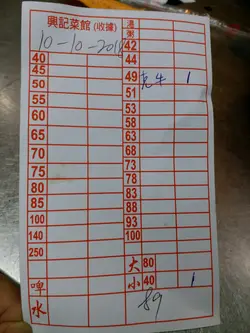 興記菜館 (收據)
10-10-2018
溫
粥
40
45
50
55
60
65
70
75
80
85
100
140
250
啤
水
42
44
49 克牛 1
51
53
63
68
73
78
83
88
93
100
大 80
小 40 1
89